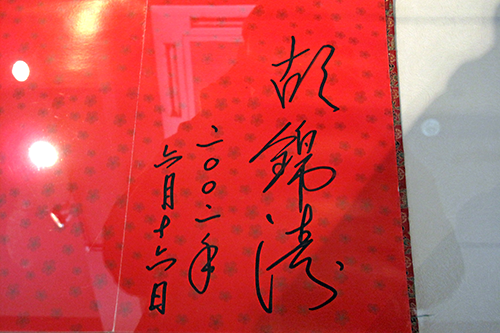 胡锦涛
二〇〇二年
六月十六日